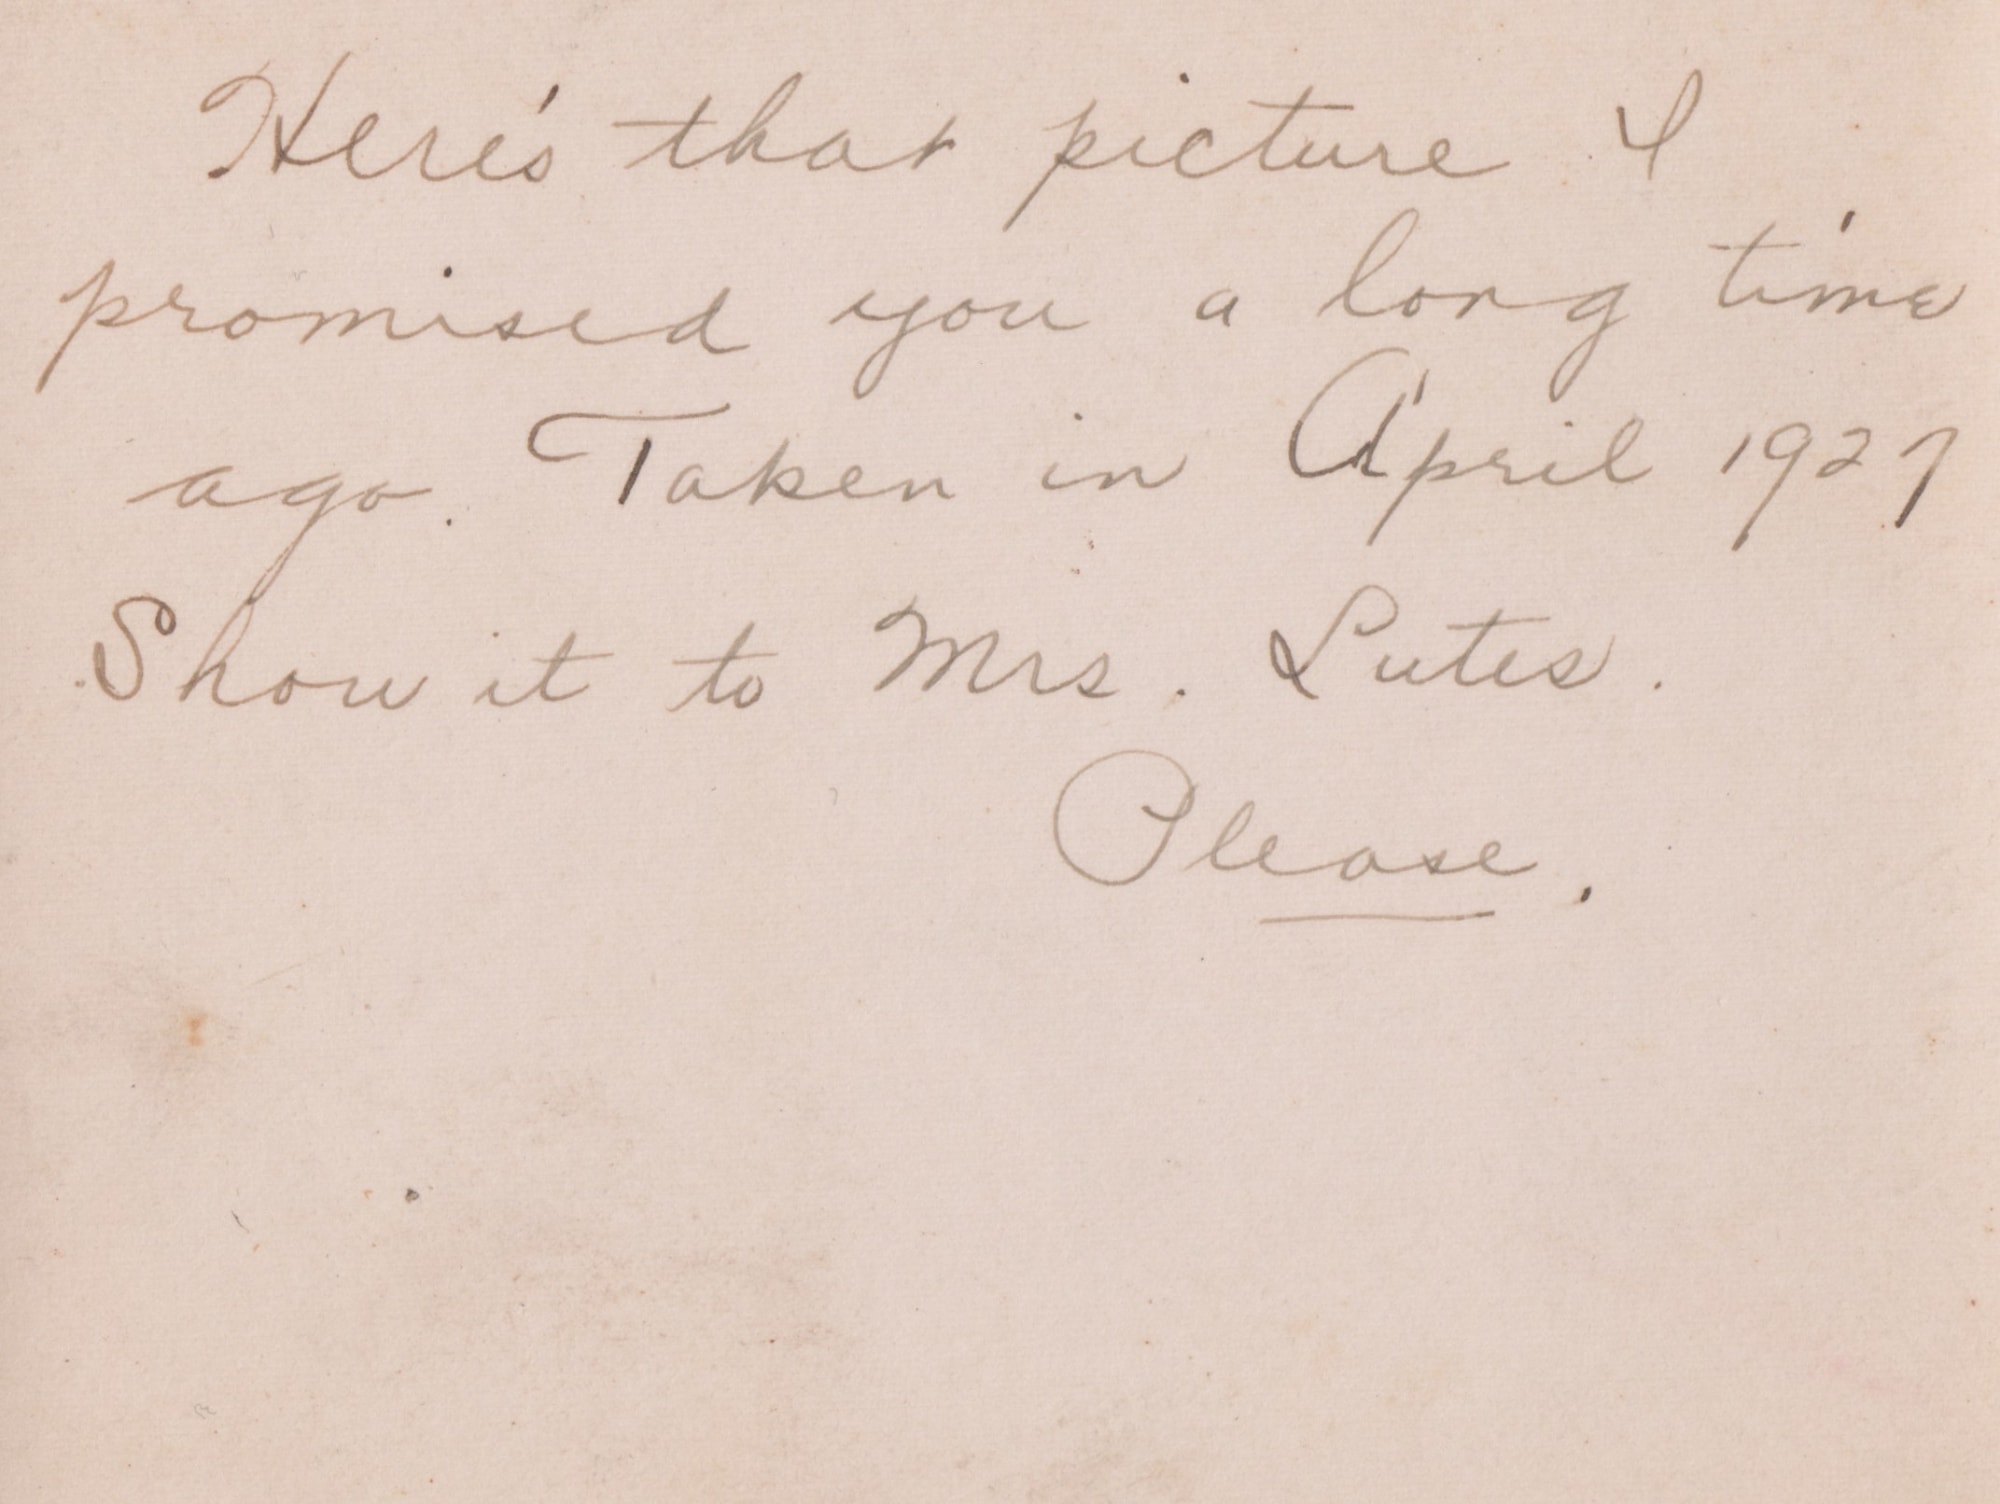 Here's that picture I
promised you a long time
ago. Taken in April 1927
Show it to Mrs. Lutes.
Please.